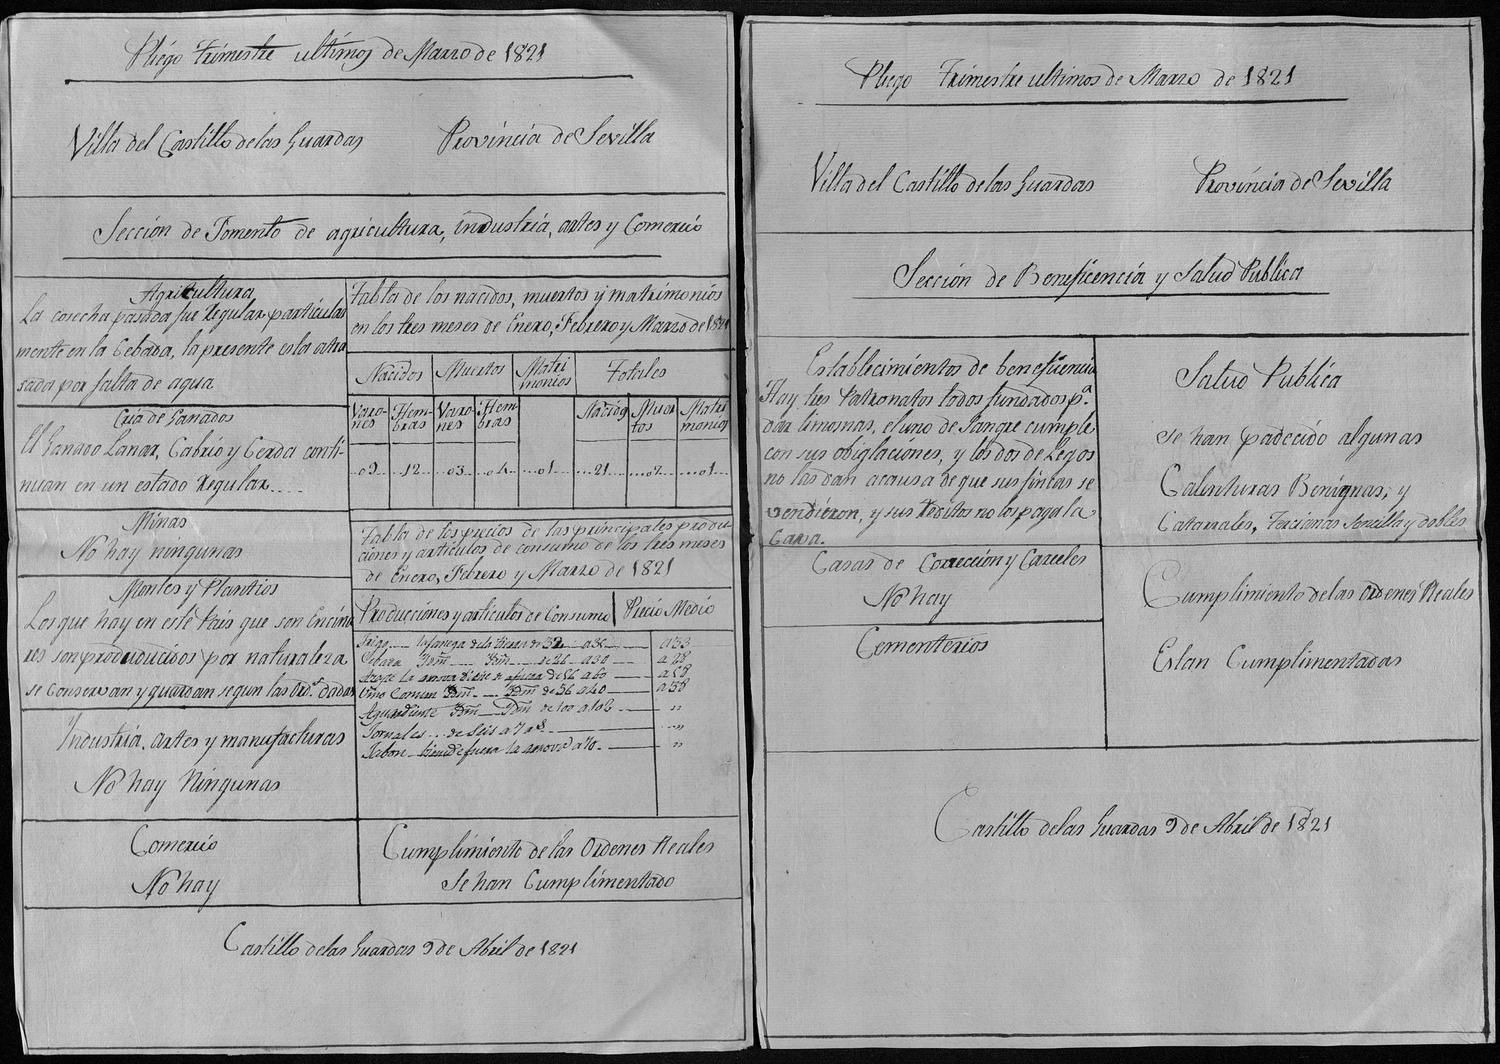 Pliego Trimestre ultimos de Marzo de 1821
Villa del Castillo de las Guardas Provincia de Sevilla
Sección de Fomento de agricultura, industria, artes y Comercio
Agricultura
La cosecha pasada fue Regular particular
mente en la Cebada, la presente esta atra
sada por falta de agua
Cria de Ganados
El Ganado Lanar, Cabrio y Cerda conti-
nuan en un estado Regular....
Minas
No hay ningunas
Montes y Plantios
Los que hay en este Pais que son Encina
res son produducidos por naturaleza
se conservan y guardan segun las Ords. dadas
Industria, artes y manufacturas
No hay Ningunas
Comercio
No hay
Tabla de los nacidos, muertos y matrimonios
en los tres meses de Enero, Febrero y Marzo de 1821
Nacidos Muertos Matri
monios Totales
Varo-
nes Hem-
bras Varo-
nes Hem-
bras Nacidos Muer
tos Matri
monios
09 12 03 04 01 21 07 01
Tabla de los precios de las principales produc-
ciones y articulos de consumo de los tres meses
de Enero, Febrero y Marzo de 1821
Producciones y articulos de Consumo Precio Medio
Trigo la fanega de la tierra de 32 a 36 a 33
Cebada Idm Idm de 26 a 30 a 28
Aceyte la arrova de de fuera de 56 a 60 a 58
Vino Comun Idm Idm de 36 a 40 a 38
Aguardiente Idm Idm de 100 a 106 "
Jornales de seis a 7 rs "
Jabon tierra de fuera la arrova a 70 "
Cumplimiento de las Ordenes Reales
Se han Cumplimentado
Castillo de las Guardas 9 de Abril de 1821
Pliego Trimestre ultimos de Marzo de 1821
Villa del Castillo de las Guardas Provincia de Sevilla
Sección de Beneficencia y Salud Publica
Establecimientos de beneficencia
Hay tres Patronatos todos fundados pa.
dar limosnas, el uno de Sangre cumple
con sus obiglaciones, y los dos de Legos
no las dan acausa de que sus fincas se
vendieron, y sus Reditos no los paga la
Caxa.
Casas de Corrección y Carceles
No hay
Cementerios
Salud Publica
Se han padecido algunas
Calenturas Benignas, y
Catarrales, Tercianas sencillas y dobles
Cumplimiento de las Ordenes Reales
Estan Cumplimentadas
Castillo de las Guardas 9 de Abril de 1821